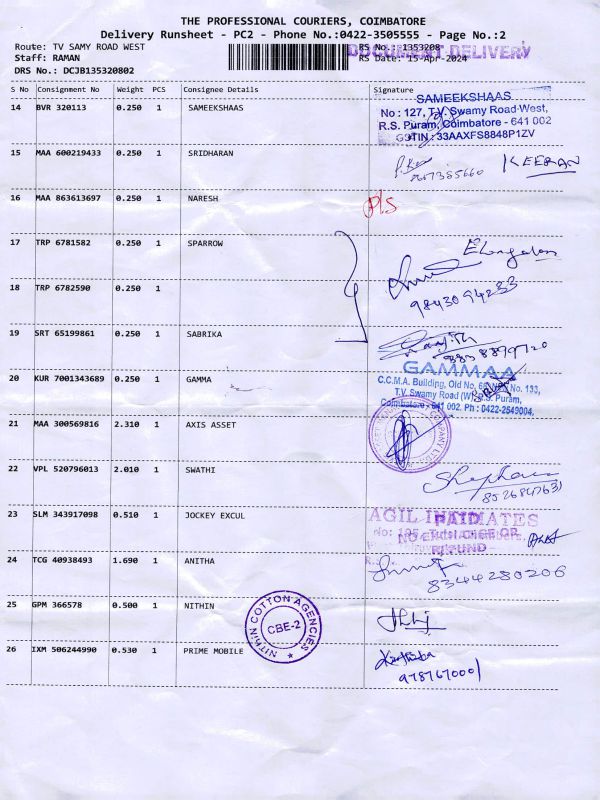 THE PROFESSIONAL COURIERS, COIMBATORE
Delivery Runsheet - PC2 - Phone No.:0422-3505555 - Page No.:2
Route: TV SAMY ROAD WEST
RS No.: 1353208
DOCUMENT DELIVERY
Staff: RAMAN
RS Date: 15-Apr-2024
DRS No.: DCJB135320802
S No Consignment No Weight PCS Consignee Details Signature
14 BVR 320113 0.250 1 SAMEEKSHAAS
SAMEEKSHAAS
No : 127, T.V. Swamy Road West,
R.S. Puram, Coimbatore - 641 002
GSTIN : 33AAXFS8848P1ZV
15 MAA 600219433 0.250 1 SRIDHARAN
KEERAN
16 MAA 863613697 0.250 1 NARESH
P/S
17 TRP 6781582 0.250 1 SPARROW
Elangolan
18 TRP 6782590 0.250 1
9843094233
19 SRT 65199861 0.250 1 SABRIKA
20 KUR 7001343689 0.250 1 GAMMA
GAMMAA
C.C.M.A. Building, Old No. No. 133,
T.V. Swamy Road (W), R.S. Puram,
Coimbatore - 641 002. Ph : 0422-2549004,
21 MAA 300569816 2.310 1 AXIS ASSET
22 VPL 520796013 2.010 1 SWATHI
23 SLM 343917098 0.510 1 JOCKEY EXCUL
AGIL
PAID
NO EXCHANGE OR
REFUND
24 TCG 40938493 1.690 1 ANITHA
8344280206
25 GPM 366578 0.500 1 NITHIN
NITHIN COTTON AGENCIES
CBE-2
26 IXM 506244990 0.530 1 PRIME MOBILE
9787670001